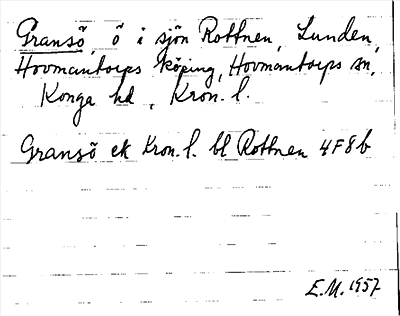 Gransö, ö i sjön Rottnen, Lunden,
Hovmantorps köping, Hovmantorps sn,
Konga hd, Kron. l.
Gransö ek Kron. l. bl Rottnen 4F8b
E.M. 1957